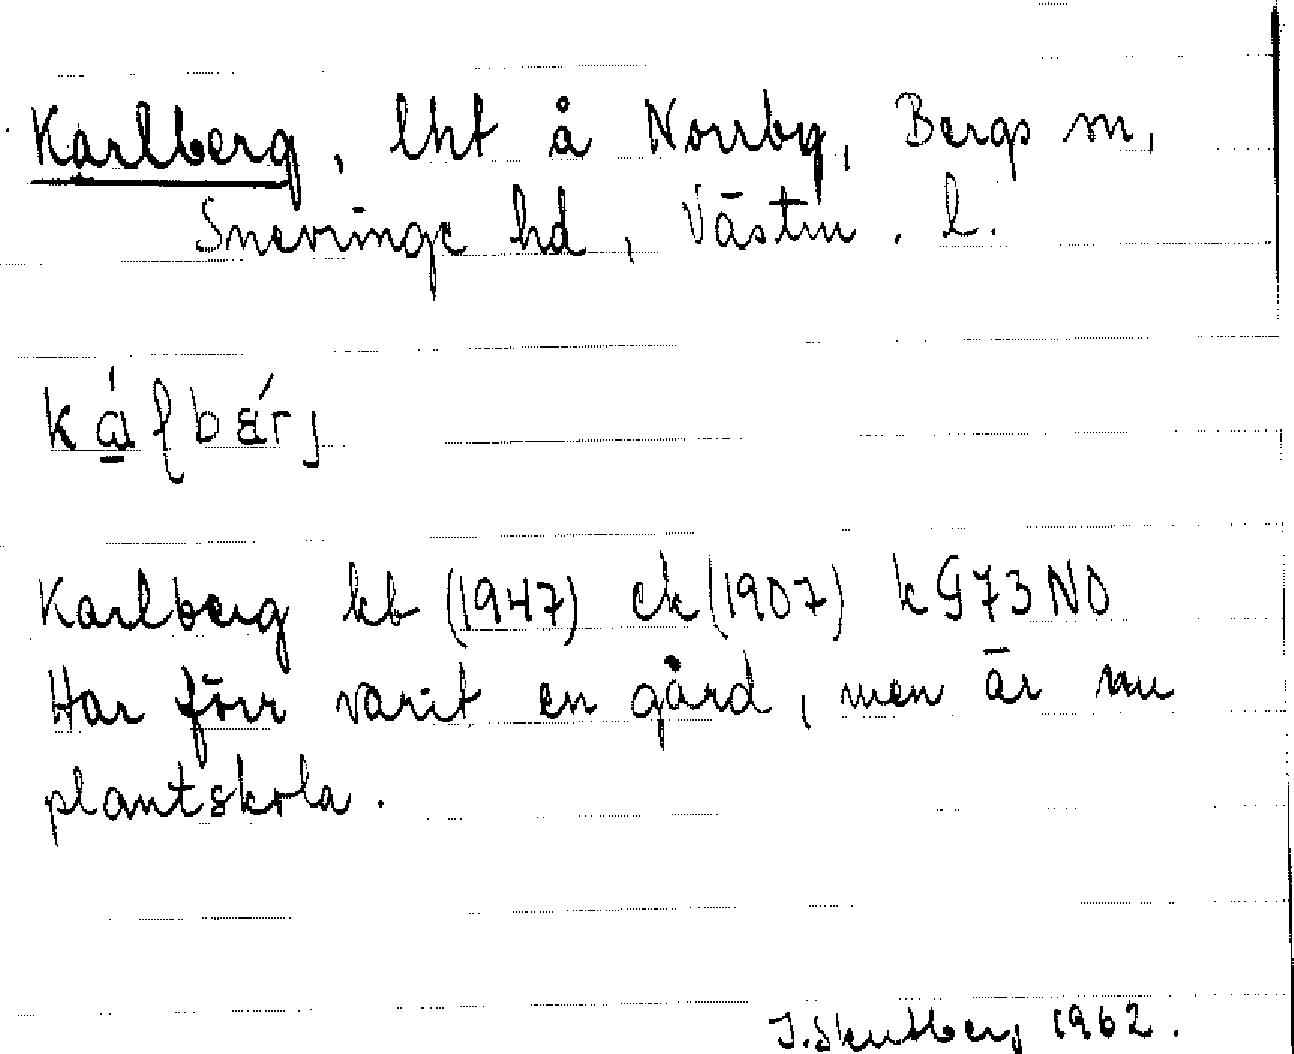 Karlberg, lht å Norrby, Bergs sn,
Snevringe hd, Västm. l.
Karlberg kb (1947) ek (1907) k G73NO
Har förr varit en gård, men är nu
plantskola.
1962.